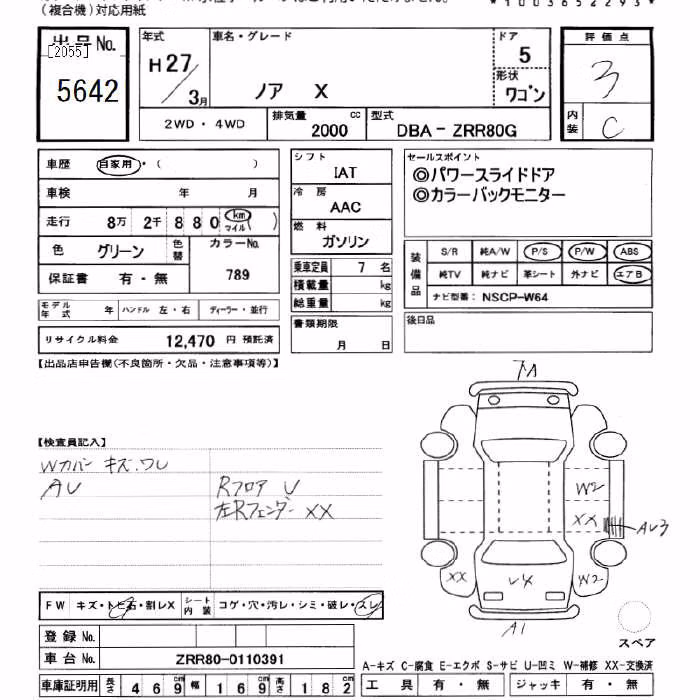 (複合機)対応用紙
*1003652293*
出品No.
[2055]
5642
年式
H27
3月
車名・グレード
ノア X
ドア
5
形状
ワゴン
評価点
3
内装
C
2WD・4WD
排気量 2000 cc
型式 DBA-ZRR80G
車歴 自家用・( )
車検 年 月
走行 8万 2千 8 8 0 km マイル ( )
色 グリーン
色替
カラーNo. 789
保証書 有・無
モデル年式 年
ハンドル 左・右
ディーラー・並行
リサイクル料金 12,470 円 預託済
シフト
IAT
冷房
AAC
燃料
ガソリン
乗車定員 7 名
積載量 kg
総重量 kg
書類期限
月 日
セールスポイント
◎パワースライドドア
◎カラーバックモニター
装備品
S/R 純A/W P/S P/W ABS
純TV 純ナビ 革シート 外ナビ エアB
ナビ型番: NSCP-W64
後日品
【出品店申告欄(不良箇所・欠品・注意事項等)】
【検査員記入】
Wカバー キズ.ワレ
AU
Rフロア U
左Rフェンダー XX
W2
XX
AU3
XX
U4
W2
A1
スペア
FW キズ・トビ石・割レX
シート内装 コゲ・穴・汚レ・シミ・破レ・スレ
登録No.
車台No. ZRR80-0110391
車庫証明用 長さ 469cm 幅 169cm 高さ 182cm
A-キズ C-腐食 E-エクボ S-サビ U-凹ミ W-補修 XX-交換済
工具 有・無
ジャッキ 有・無